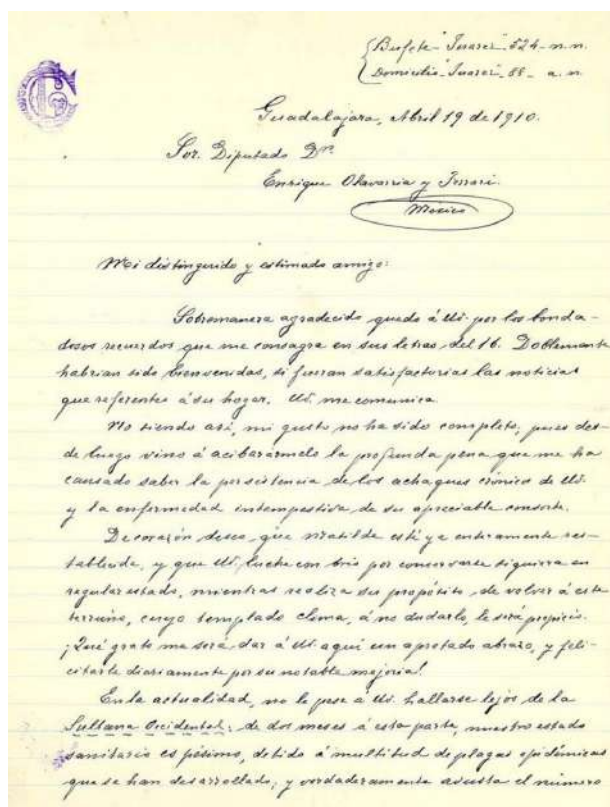 Bufete - Juarez - 524 - n.n.
Domicilio - Juarez - 88 - a.n.
Guadalajara, Abril 19 de 1910.
Sor. Diputado Dn.
Enrique Olavarria y Ferrari.
Mexico
Mi distinguido y estimado amigo:
Sobremanera agradecido quedo á Ud. por los bonda-
dosos recuerdos que me consagra en sus letras del 16. Doblemente
habrian sido bienvenidas, si fueran satisfactorias las noticias
que referentes á su hogar, Ud. me comunica.
No siendo asi, mi gusto no ha sido completo; pues des-
de luego vino á acibarármelo la profunda pena que me ha
causado saber la persistencia de los achaques crónicos de Ud.
y la enfermedad intempestiva de su apreciable consorte.
De corazón deseo, que Matilde esté ya enteramente res-
tablecida, y que Ud. luche con brio por conservarse siquiera en
regular estado, mientras realiza su propósito de volver á este
terruño, cuyo templado clima, á no dudarlo, le será propicio.
¡Qué grato me será dar á Ud. aqui un apretado abrazo, y feli-
citarle diariamente por su notable mejoria!
En la actualidad, no le pese á Ud. hallarse lejos de la
Sultana Occidental: de dos meses á esta parte, nuestro estado
sanitario es pésimo, debido á multitud de plagas epidémicas
que se han desarrollado; y verdaderamente asusta el número